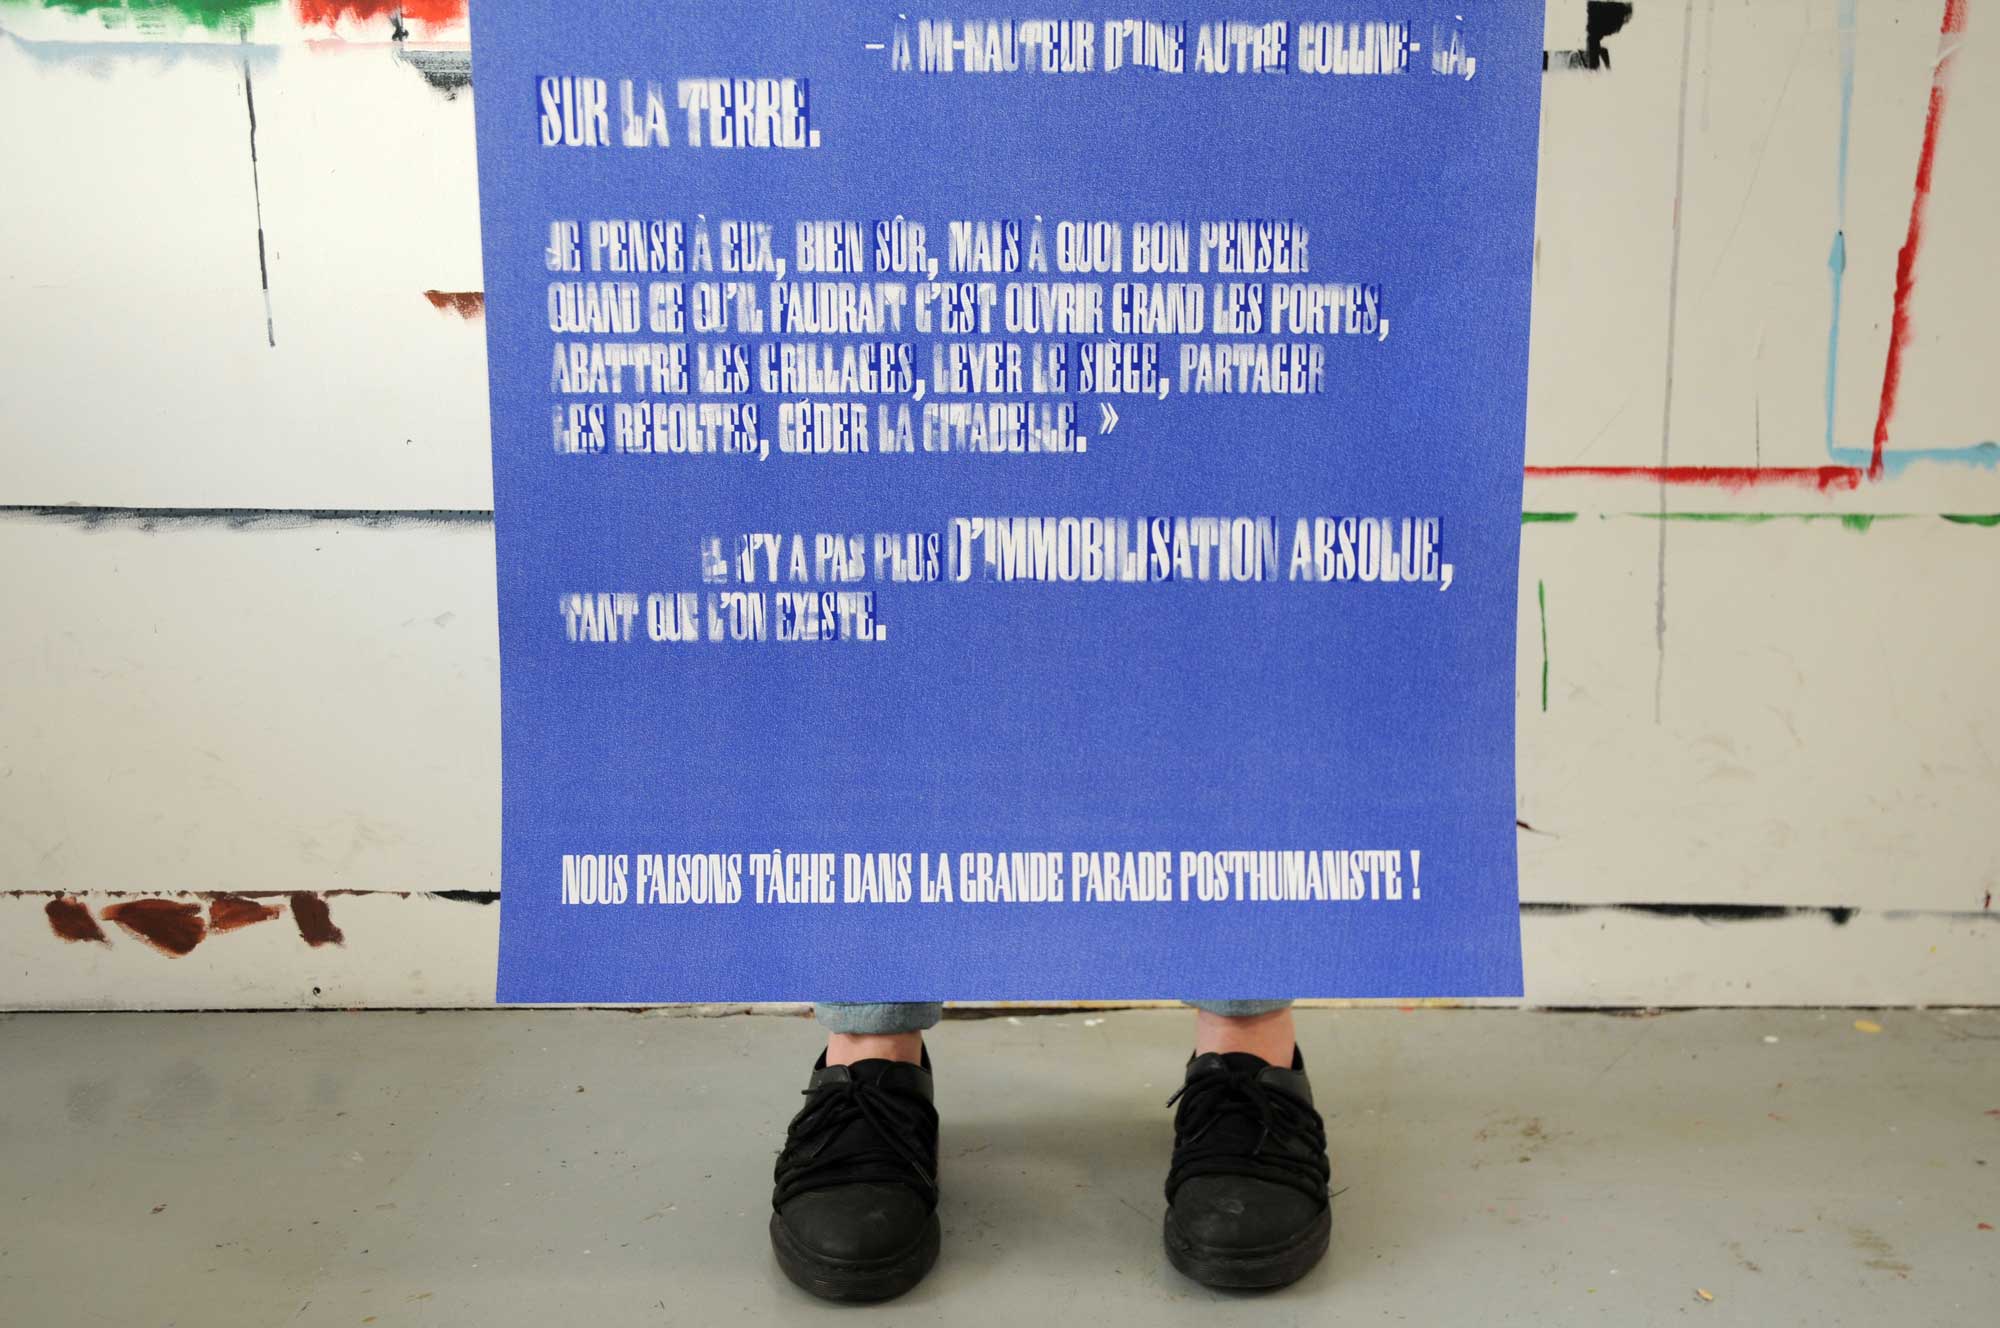 – À MI-HAUTEUR D'UNE AUTRE COLLINE- LÀ,
SUR LA TERRE.
JE PENSE À EUX, BIEN SÛR, MAIS À QUOI BON PENSER
QUAND CE QU'IL FAUDRAIT C'EST OUVRIR GRAND LES PORTES,
ABATTRE LES GRILLAGES, LEVER LE SIÈGE, PARTAGER
LES RÉCOLTES, CÉDER LA CITADELLE. »
IL N'Y A PAS PLUS D'IMMOBILISATION ABSOLUE,
TANT QUE L'ON EXISTE.
NOUS FAISONS TÂCHE DANS LA GRANDE PARADE POSTHUMANISTE !